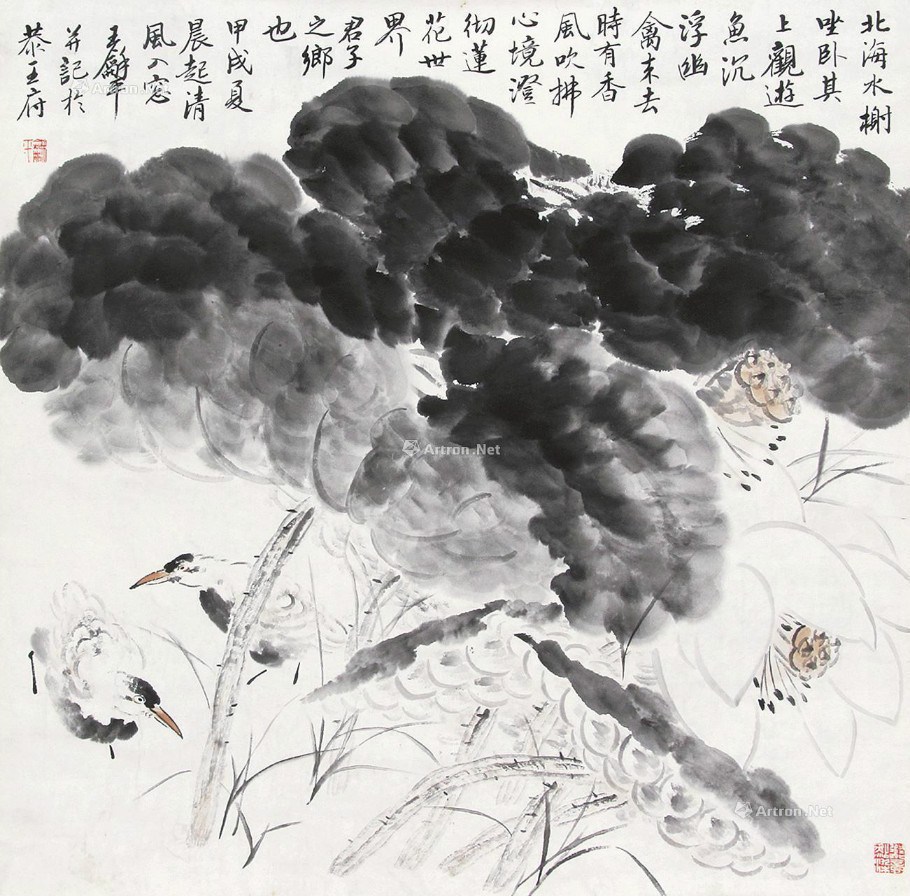 北海水榭
坐卧其
上觀遊
魚沉
浮幽
禽来去
時有香
風吹拂
心境澄
彻蓮
花世
界
君子
之鄉
也
甲戌夏
晨起清
風入窓
王龢平
并記於
恭王府
Artron.Net
Artron.Net
Artron.Net
Artron.Net